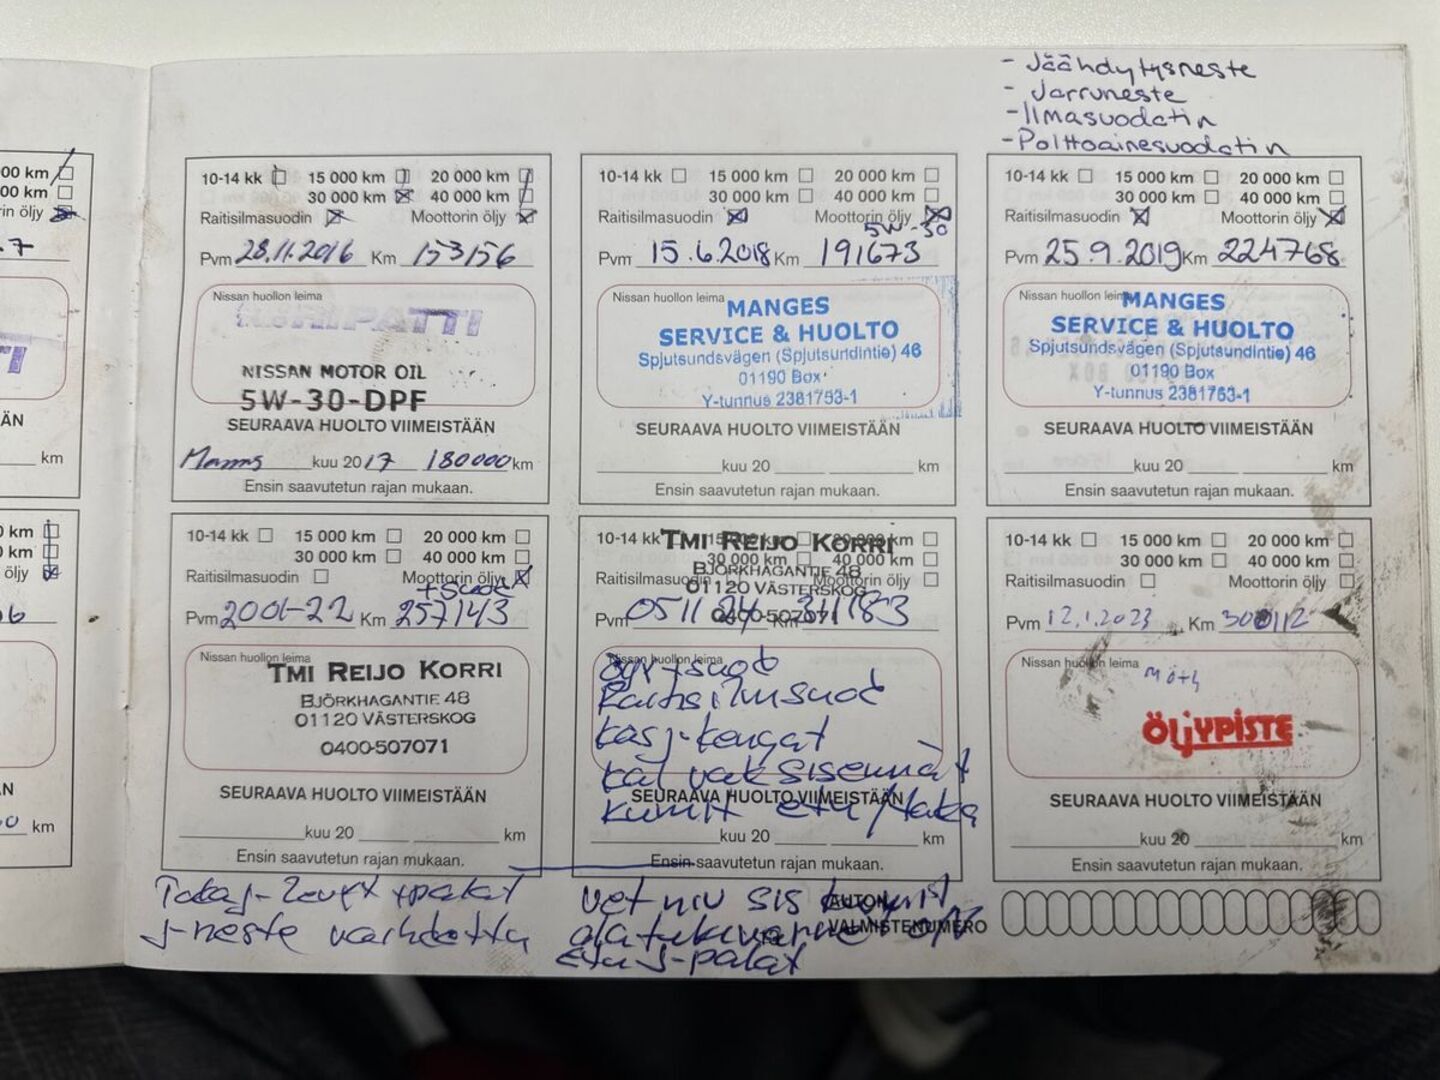 - Jäähdytysneste
- Jarruneste
- Ilmasuodatin
- Polttoainesuodatin
00 km
00 km
rin öljy
.7
ÄN
km
10-14 kk 15 000 km 20 000 km
30 000 km 40 000 km
Raitisilmasuodin Moottorin öljy
Pvm 28.11.2016 Km 153156
Nissan huollon leima
NISSAN MOTOR OIL
5W-30-DPF
SEURAAVA HUOLTO VIIMEISTÄÄN
kuu 2017 180000 km
Ensin saavutetun rajan mukaan.
10-14 kk 15 000 km 20 000 km
30 000 km 40 000 km
Raitisilmasuodin Moottorin öljy
5W-30
Pvm 15.6.2018 Km 191673
Nissan huollon leima
MANGES
SERVICE & HUOLTO
Spjutsundsvägen (Spjutsundintie) 46
01190 Box
Y-tunnus 2381753-1
SEURAAVA HUOLTO VIIMEISTÄÄN
kuu 20 km
Ensin saavutetun rajan mukaan.
10-14 kk 15 000 km 20 000 km
30 000 km 40 000 km
Raitisilmasuodin Moottorin öljy
Pvm 25.9.2019 Km 224768
Nissan huollon leima
MANGES
SERVICE & HUOLTO
Spjutsundsvägen (Spjutsundintie) 46
01190 Box
Y-tunnus 2381753-1
SEURAAVA HUOLTO VIIMEISTÄÄN
kuu 20 km
Ensin saavutetun rajan mukaan.
km
km
öljy
km
10-14 kk 15 000 km 20 000 km
30 000 km 40 000 km
Raitisilmasuodin Moottorin öljy
Pvm Km 257143
Nissan huollon leima
TMI REIJO KORRI
BJÖRKHAGANTIE 48
01120 VÄSTERSKOG
0400-507071
SEURAAVA HUOLTO VIIMEISTÄÄN
kuu 20 km
Ensin saavutetun rajan mukaan.
j-neste vaihdettu
10-14 kk 15 000 km km
30 000 km 40 000 km
Raitisilmasuodin Moottorin öljy
TMI REIJO KORRI
BJÖRKHAGANTIE 48
01120 VÄSTERSKOG
0400-507071
Pvm 0511 24
Nissan huollon leima
Raitisilmsuod
kas j-kengat
SEURAAVA HUOLTO VIIMEISTÄÄN
kumit etu/taka
kuu 20 km
Ensin saavutetun rajan mukaan.
vet niv sis
AUTON
VALMISTENUMERO
etu j-palat
10-14 kk 15 000 km 20 000 km
30 000 km 40 000 km
Raitisilmasuodin Moottorin öljy
Pvm 12.1.2023 Km 300112
Nissan huollon leima
ÖLJYPISTE
SEURAAVA HUOLTO VIIMEISTÄÄN
kuu 20 km
Ensin saavutetun rajan mukaan.